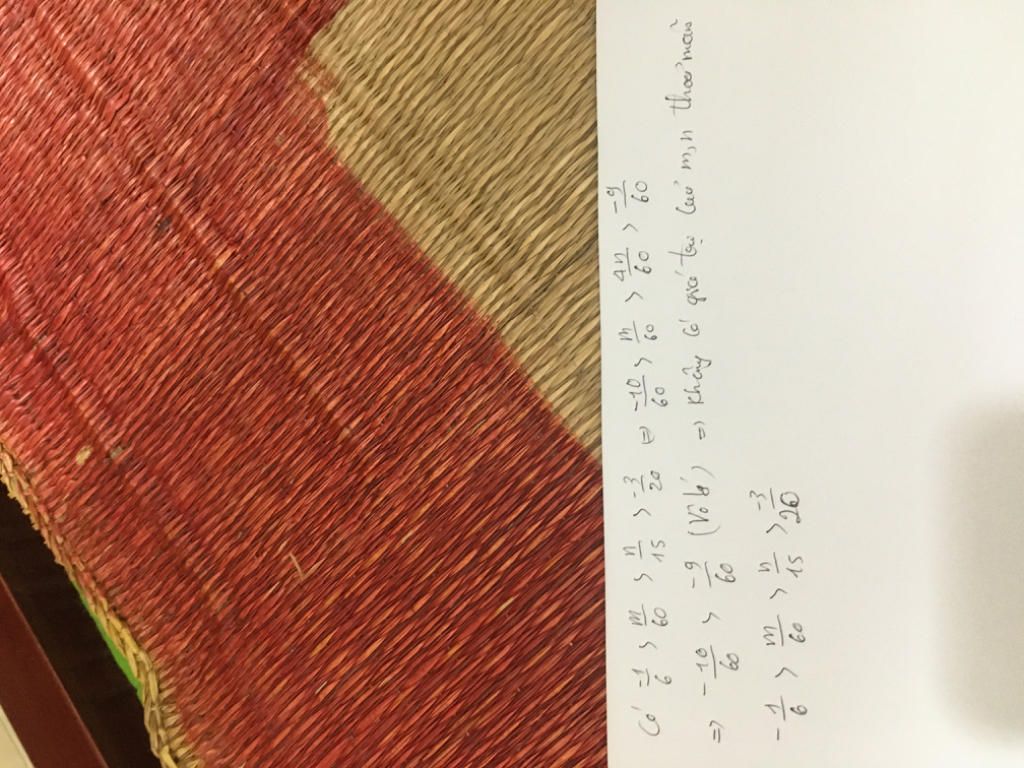 Có -1/6 > m/60 > n/15 > -3/20 => -10/60 > m/60 > 4n/60 > -9/60
=> -10/60 > -9/60 (Vô lý) => Không có giá trị của m, n thoả mãn
-1/6 > m/60 > n/15 > -3/20